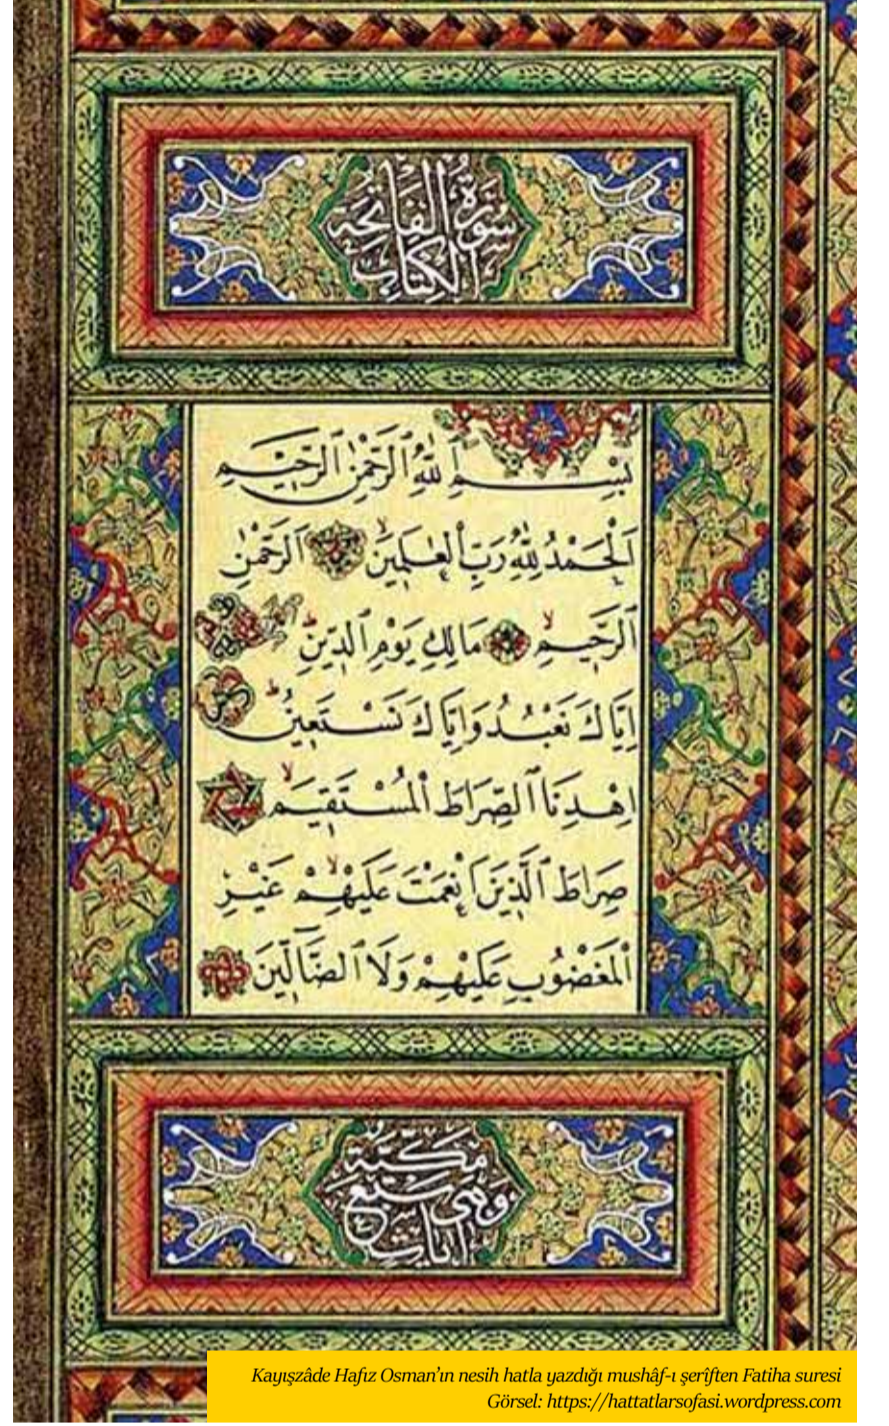 سُورَةُ الْفَاتِحَةِ
الْكِتَابِ
بِسْمِ اللّٰهِ الرَّحْمٰنِ الرَّحِيمِ
اَلْحَمْدُ لِلّٰهِ رَبِّ الْعٰلَمِينَۙ الرَّحْمٰنِ
الرَّحِيمِۙ مَالِكِ يَوْمِ الدِّينِۜ
اِيَّاكَ نَعْبُدُ وَاِيَّاكَ نَسْتَعِينُۜ
اِهْدِنَا الصِّرَاطَ الْمُسْتَقِيمَۙ
صِرَاطَ الَّذِينَ اَنْعَمْتَ عَلَيْهِمْۙ غَيْرِ
الْمَغْضُوبِ عَلَيْهِمْ وَلَا الضَّٓالِّينَ
مَكِّيَّةٌ
وَهِيَ سَبْعُ
اٰيَاتٍ
Kayışzâde Hafız Osman’ın nesih hatla yazdığı mushâf-ı şerîften Fatiha suresi
Görsel: https://hattatlarsofasi.wordpress.com